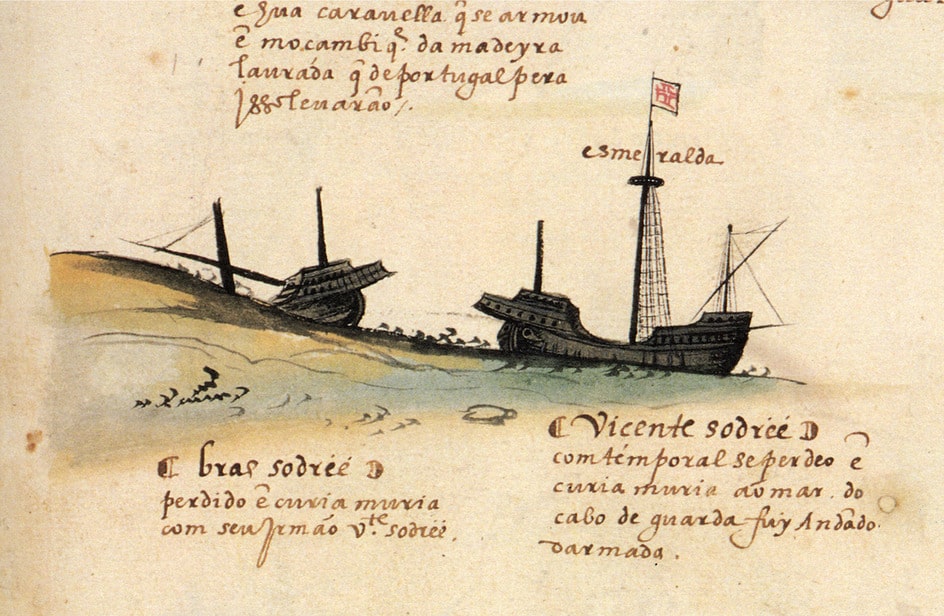 e sua caravella q̃ se armou
ẽ moçambiq̃. da madeyra
laurada q̃ de portugal pera
jsso levarão /.
esmeralda
bras sodréé
perdido ẽ curia muria
com seu Jrmão v.te sodréé.
Vicente sodréé
com témporal se perdeo ẽ
curia muria ao mar. do
cabo de guarda fuy Andãdo
darmada.